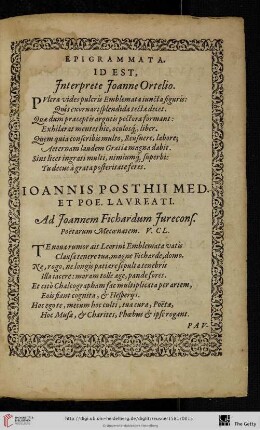 EPIGRAMMATA,
ID EST,
Interprete Joanne Ortelio.
PLura vides pulcris Emblemata iuncta figuris:
Quis exornari splendida tecta decet.
Quæ dum præceptis argutis pectora formant:
Exhilarat mentes hic, oculosq́; liber.
Quem quia conscribis multo, Reusnere, labore,
Aeternam laudem Gratia magna dabit.
Sint licet ingrati multi, nimiumq́; superbi:
Tu decus à grata posteritate feres.
IOANNIS POSTHII MED.
ET POE. LAVREATI.
Ad Joannem Fichardum Jurecons.
Poëtarum Mecœnatem. V. CL.
TE nunc rumor ait Leorini Emblemata vatis
Clausa tenere tua, magne Ficharde, domo.
Ne, rogo, ne longùm patiere sepulta tenebris
Illa iacere: moram tolle age, pande fores.
Et citò Chalcographûm fac multiplicata per artem,
Eois fiant cognita, & Hesperijs.
Hoc ego te, mecum hoc culti, tua cura, Poëtæ,
Hoc Musæ, & Charites, Phœbus & ipse rogant.
PAV-